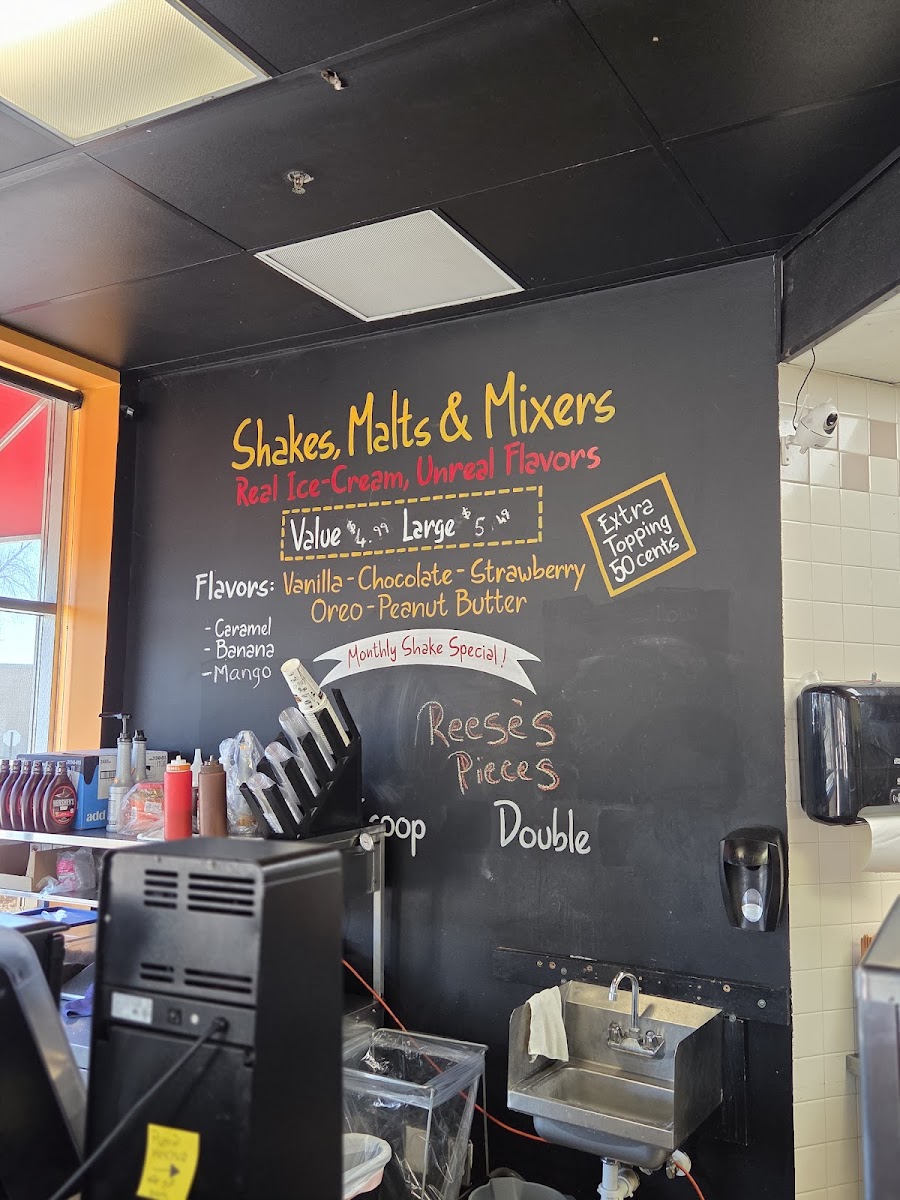 Shakes, Malts & Mixers
Real Ice-Cream, Unreal Flavors
Value $4.99 Large $5.49
Extra
Topping
50 cents
Flavors: Vanilla - Chocolate - Strawberry
Oreo - Peanut Butter
- Caramel
- Banana
- Mango
Monthly Shake Special!
Reese's
Pieces
coop Double
HERSHEY'S
add